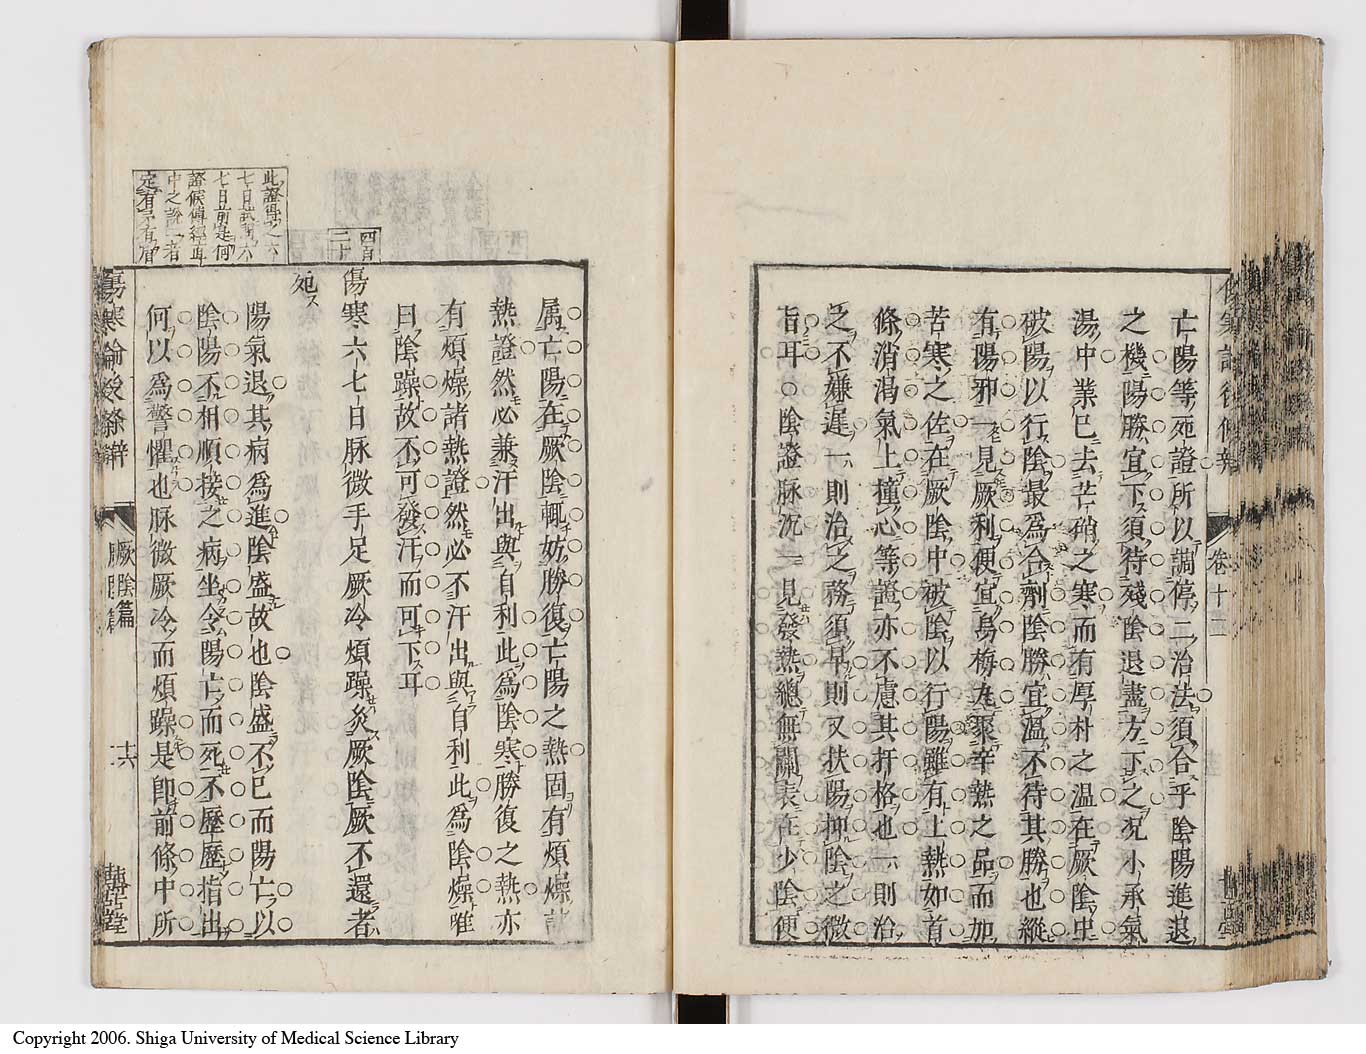 亡陽等死證所以調停二治法須合乎陰陽進退
之機陽勝宜下須待殘陰退盡方下之况小承氣
湯中業已去芒硝之寒而有厚朴之温在厥陰中
破陽以行陰最為合劑陰勝宜温不待其勝也縱
有陽邪一見厥利便宜烏梅丸聚辛熱之品而加
苦寒之佐在厥陰中破陰以行陽雖有上熱如首
條消渴氣上撞心等證亦不慮其扞格也一則治
之不嫌遲一則治之務須早則又扶陽抑陰之微
旨耳○陰證脉沉一見發熱總無關表在少陰便
卷十三
属亡陽在厥陰輒妨勝復亡陽之熱固有煩燥諸
熱證然必兼汗出與自利此為陰寒勝復之熱亦
有煩燥諸熱證然必不汗出與自利此為陰燥唯
曰陰躁故不可發汗而可下耳
四百
二十
傷寒六七日脉微手足厥冷煩躁灸厥陰厥不還者
死
此證得之六
七日試問六
七日前是何
證候傳經直
中之說者
定有以省眉
陽氣退其病為進陰盛故也陰盛不已而陽亡以
陰陽不相順接之病坐令陽亡而死不歷歷指出
何以為警懼也脉微厥冷而煩躁是即前條中所
傷寒論後條辨
厥陰篇
十六